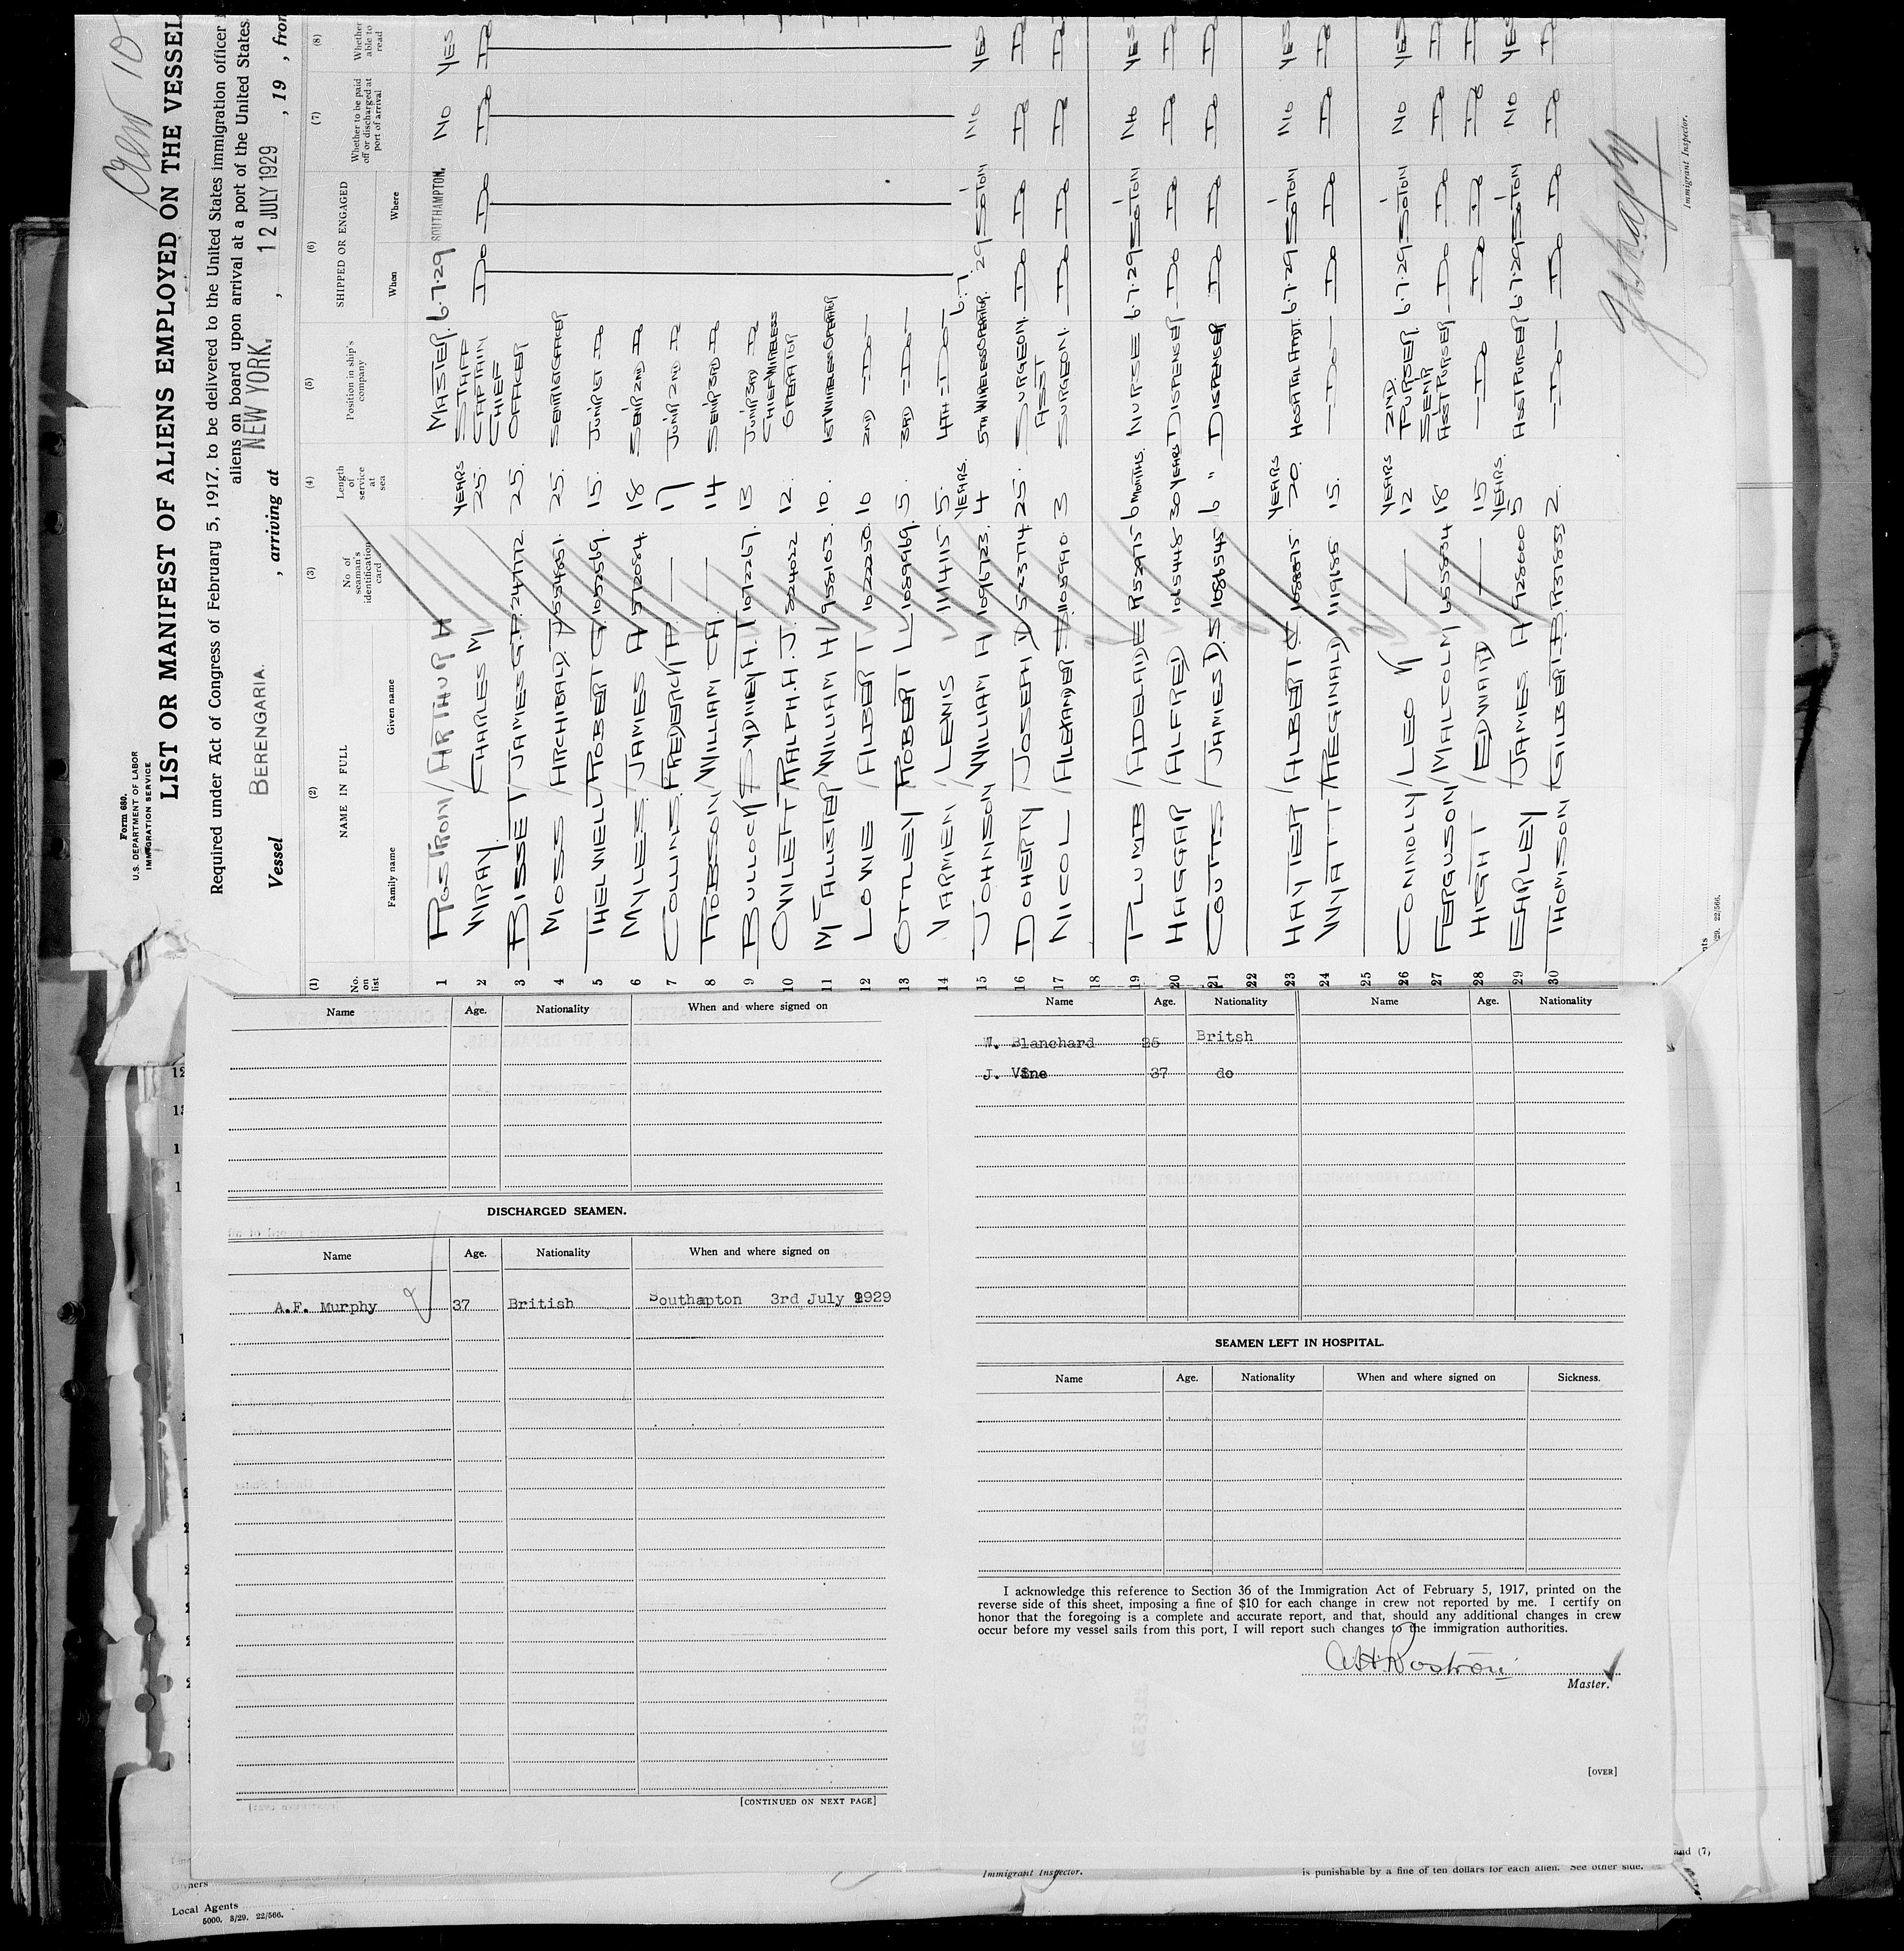 Crew 10
Form 680.
U.S. DEPARTMENT OF LABOR
IMMIGRATION SERVICE
LIST OR MANIFEST OF ALIENS EMPLOYED ON THE VESSEL
Required under Act of Congress of February 5, 1917, to be delivered to the United States immigration officer
aliens on board upon arrival at a port of the United States
Vessel BERENGARIA. , arriving at NEW YORK. , 12 JULY 1929 , 19 , from
(1) (2) (3) (4) (5) (6) (7) (8)
No. on list NAME IN FULL Family name Given name No. of seaman's identification card Length of service at sea Position in ship's company SHIPPED OR ENGAGED When Where Whether to be paid off or discharged at port of arrival Whether able to read
1 ROSTRON ARTHUR H YEARS MASTER. 6.7.29 SOUTHAMPTON. NO YES
2 WRAY. CHARLES M 25. STAFF CAPTAIN DO DO DO DO
3 BISSET JAMES G.P. 247772. 25. CHIEF OFFICER
4 MOSS ARCHIBALD. 25. SENR 1ST OFFICER
5 THELWELL ROBERT G. 1052569. 15. JUNR 1ST DO
6 MYLES. JAMES A 572084. 18 SENR 2ND DO
7 COLLINS. FREDERICK A. — 17 JUNR 2ND DO
8 ROBSON WILLIAM CA. — 14 SENR 3RD DO
9 BULLOCK SYDNEY H.T 1072267. 13 JUNR 3RD DO
10 OWLETT RALPH. H. J. 224022 12. CHIEF WIRELESS OPERATOR
11 McALLISTER WILLIAM H 958163. 10. 1ST WIRELESS OPERATOR
12 LOWE ALBERT 1022250. 10 2ND —DO—
13 OTTLEY ROBERT L 1089969. 5. 3RD —DO—
14 VARMEN LEWIS 1114115 5. 4TH —DO—
15 JOHNSON WILLIAM H 1096723. YEARS. 4 5TH WIRELESS OPERATOR. 6.7.29 SO'TON NO YES
16 DOHERTY JOSEPH D 523774 25. SURGEON. DO DO DO DO
17 NICOL ALEXANDER S. 1105990. 3 ASST SURGEON. DO DO DO DO
18
19 PLUMB ADELAIDE R52975 6 MONTHS. NURSE 6.7.29 SO'TON NO YES
20 HAGGAR ALFRED 1065448 30 YEARS DISPENSER DO DO DO DO
21 COUTTS JAMES D.S 1086545. 6 " DISPENSER DO DO DO DO
22
23 HAYTER ALBERT C. 1088875. YEARS 20. HOSPITAL ATTDT. 6.7.29 SO'TON NO YES
24 WYATT REGINALD 1119185. 15. —DO— DO DO DO DO
25
26 CONNOLLY LEO V — YEARS 12 2ND PURSER. 6.7.29 SO'TON NO YES
27 FERGUSON MALCOLM 655834 18 SENR ASST PURSER DO DO DO DO
28 HIGHT EDWARD — 15 —DO— DO DO DO DO
29 EARLEY JAMES. A 928000 YEARS. 5 ASST PURSER 6.7.29 SO'TON NO YES
30 THOMSON GILBERT B. R37832 2. —DO— DO DO DO DO
Immigrant Inspector.
Name Age. Nationality When and where signed on
DISCHARGED SEAMEN.
Name Age. Nationality When and where signed on
A.F. Murphy 37 British Southapton 3rd July 1929
[CONTINUED ON NEXT PAGE]
Name Age. Nationality Name Age. Nationality
W. Blanchard 25 Britsh
J. Vine 37 do
SEAMEN LEFT IN HOSPITAL.
Name Age. Nationality When and where signed on Sickness.
I acknowledge this reference to Section 36 of the Immigration Act of February 5, 1917, printed on the
reverse side of this sheet, imposing a fine of $10 for each change in crew not reported by me. I certify on
honor that the foregoing is a complete and accurate report, and that, should any additional changes in crew
occur before my vessel sails from this port, I will report such changes to the immigration authorities.
A.H. Rostron
Master.
[OVER]
and (7)
Immigrant Inspector.
is punishable by a fine of ten dollars for each alien. See other side.
Owners
Local Agents
5000. 3/29. 22/566.